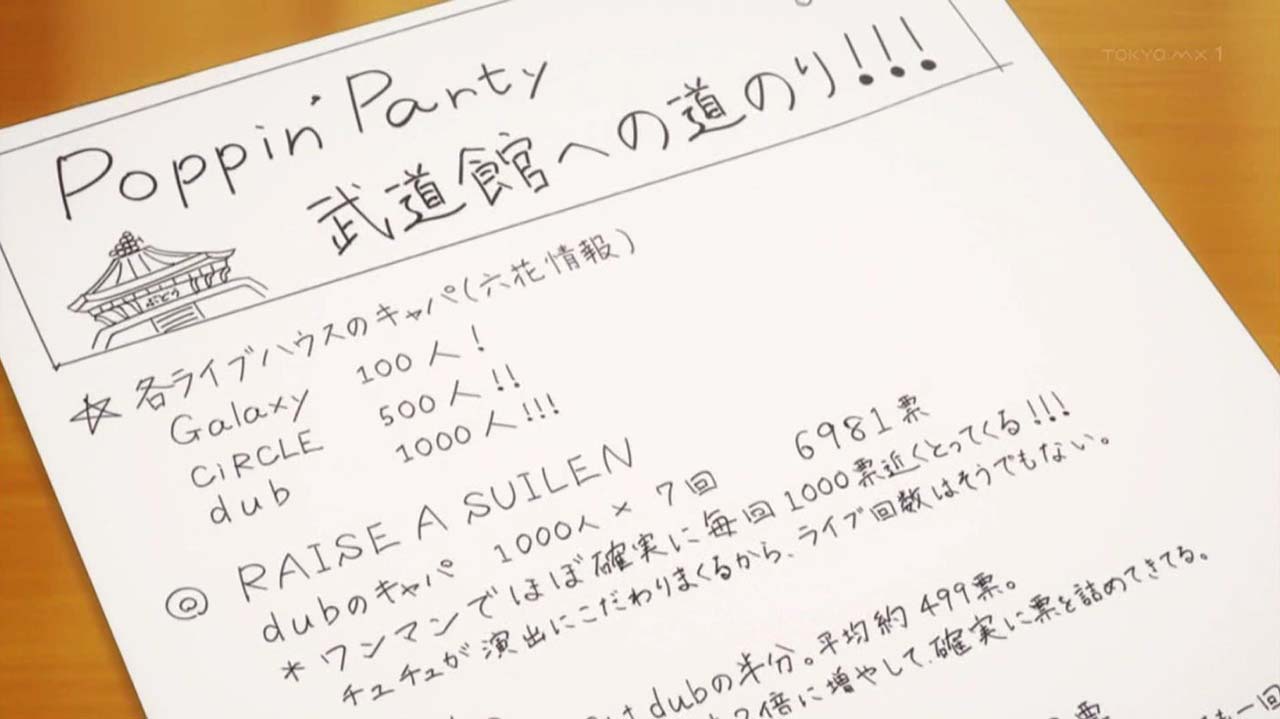 TOKYO MX 1
Poppin'Party
武道館への道のり!!!
ぶどう
☆ 各ライブハウスのキャパ(六花情報)
Galaxy 100人!
CiRCLE 500人!!
dub 1000人!!!
@ RAISE A SUILEN 6981票
dubのキャパ 1000人 × 7回
*ワンマンでほぼ確実に毎回1000票近くとってくる!!!
チュチュが演出にこだわりまくるから、ライブ回数はそうでもない。
dubの半分。平均約499票。
2倍に増やして、確実に票を詰めてきてる。
票
も一回